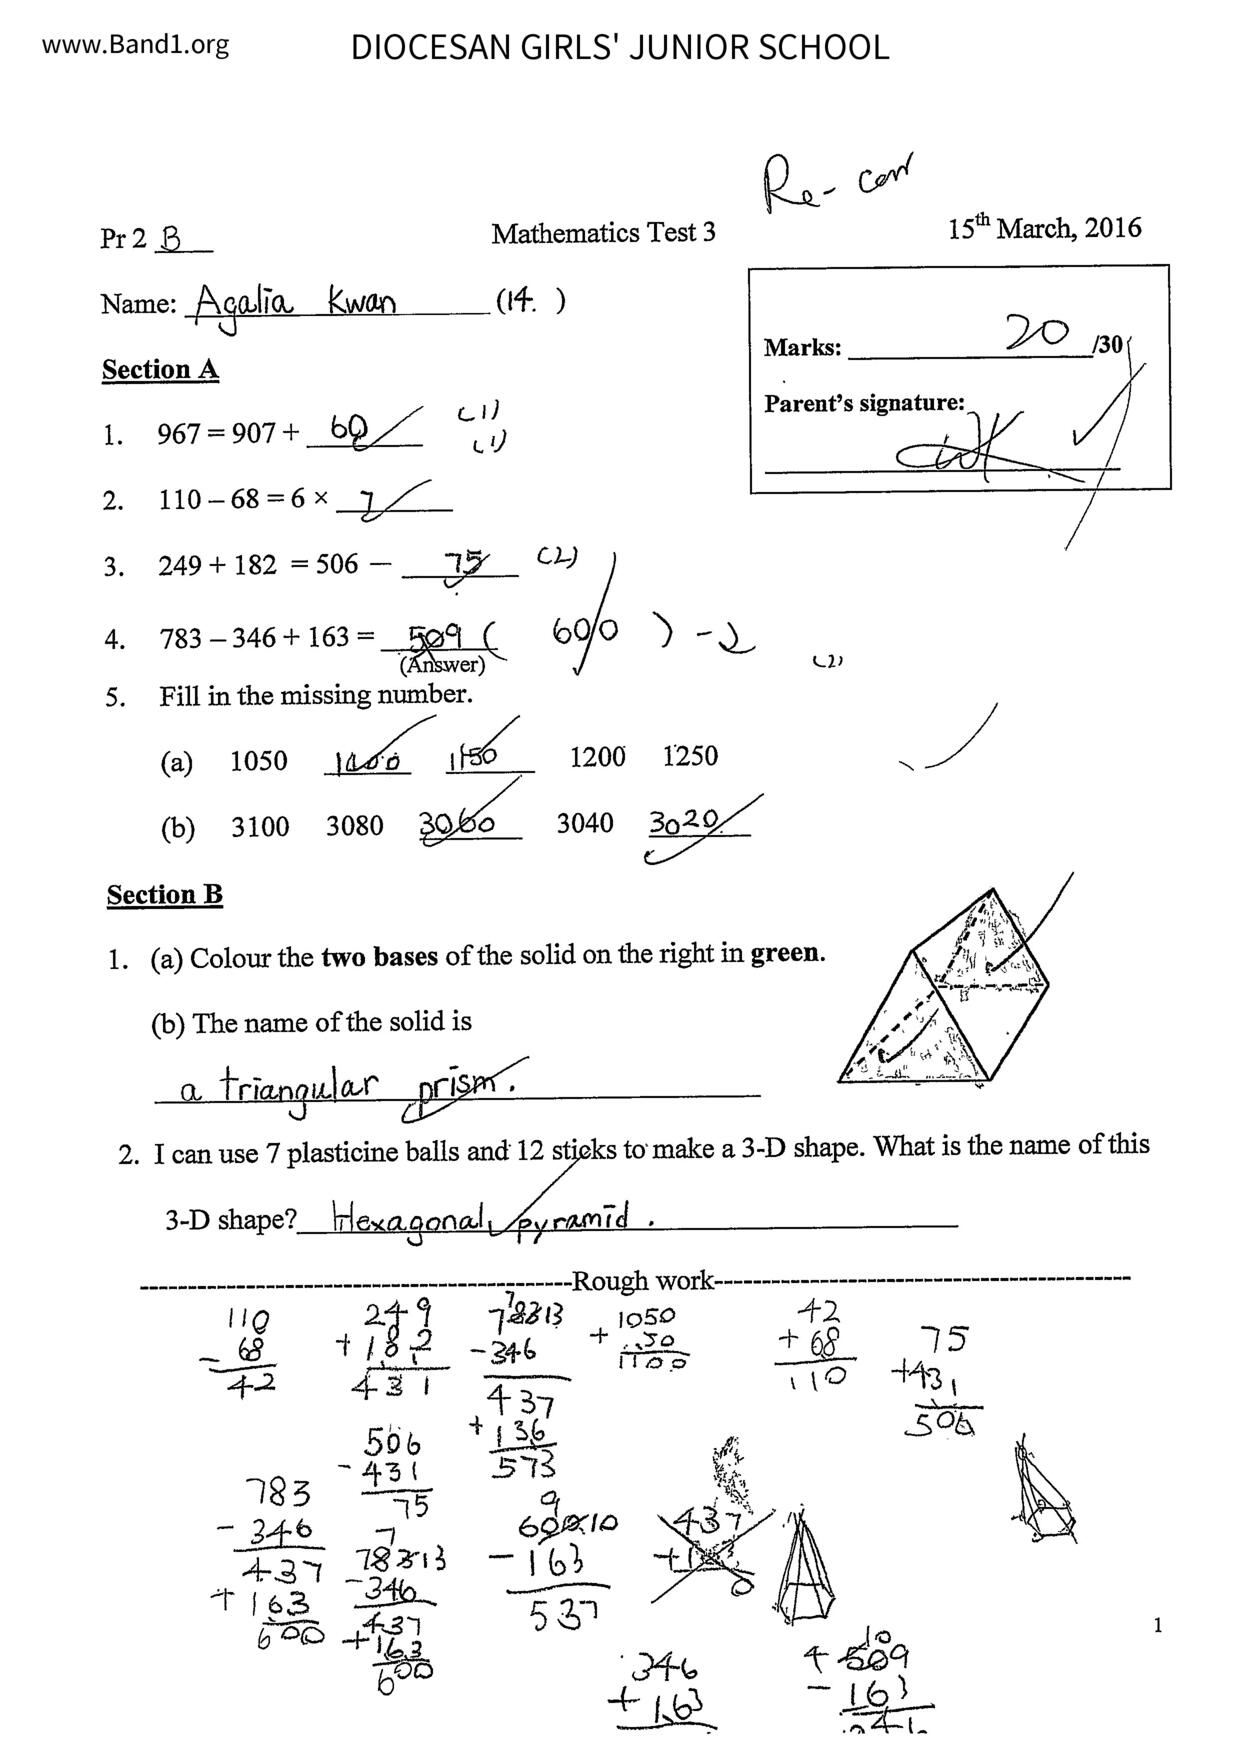 www.Band1.org
DIOCESAN GIRLS' JUNIOR SCHOOL
Re-corr
Pr 2 B
Mathematics Test 3
15th March, 2016
Name: Agalia Kwan (14. )
Marks: 20 /30
Parent's signature:
Section A
1. 967 = 907 + 60 (1)
(1)
2. 110 – 68 = 6 × 7
3. 249 + 182 = 506 – 75 (2)
4. 783 – 346 + 163 = 509 ( 600 ) -2
(Answer)
(2)
5. Fill in the missing number.
(a) 1050 1100 1150 1200 1250
(b) 3100 3080 3060 3040 3020
Section B
1. (a) Colour the two bases of the solid on the right in green.
(b) The name of the solid is
a triangular prism.
2. I can use 7 plasticine balls and 12 sticks to make a 3-D shape. What is the name of this
3-D shape? Hexagonal pyramid.
Rough work
110
- 68
42
249
+ 182
431
506
- 431
75
- 346
437
+ 136
573
1050
+ 50
1100
42
+ 68
110
75
+ 431
506
783
- 346
437
+ 163
600
- 346
437
+ 163
600
- 163
537
437
346
+ 163
509
- 163
1